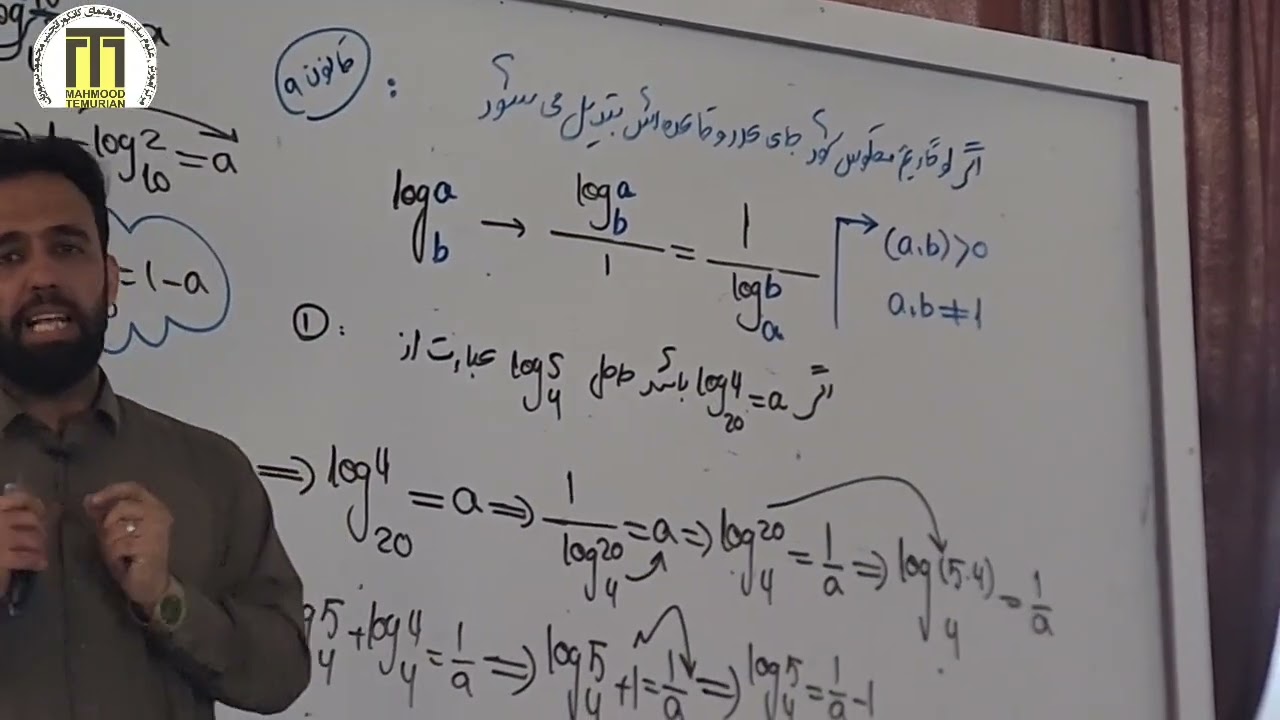 MAHMOOD
TEMURIAN
log₁₀2 = a
= 1 - a
قانون ۹ :
اگر لوگاریتم معکوس گردد جای عدد و قاعده اش تبدیل می شود
log_b a → (log_b a)/1 = 1/(log_a b)
(a,b) > 0
a,b ≠ 1
① : اگر log₂₀4 = a باشد حاصل log₄5 عبارت از
⇒ log₂₀4 = a ⇒ 1/(log₄20) = a ⇒ log₄20 = 1/a ⇒ log₄(5·4) = 1/a
log₄5 + log₄4 = 1/a ⇒ log₄5 + 1 = 1/a ⇒ log₄5 = 1/a - 1